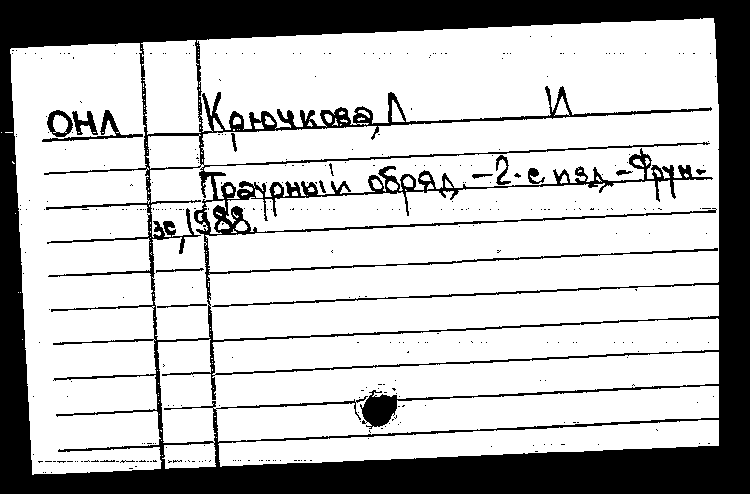 ОНЛ Крючкова, Л И
Траурный обряд. - 2-е изд. - Фрун-
зе, 1988.